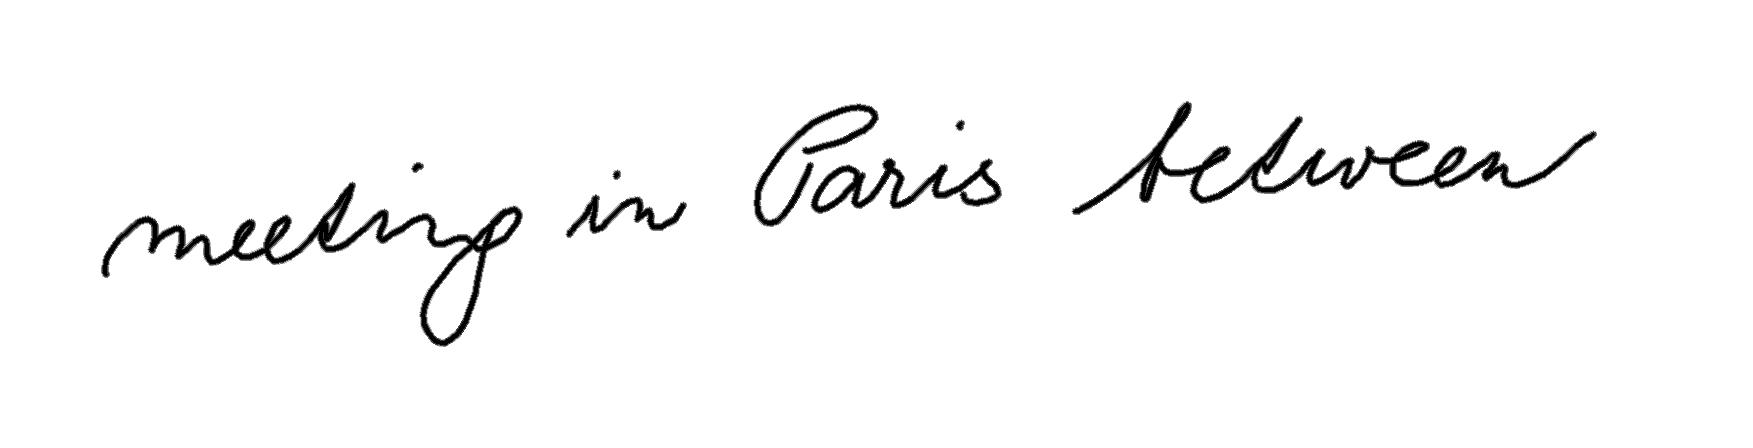 meeting in Paris between